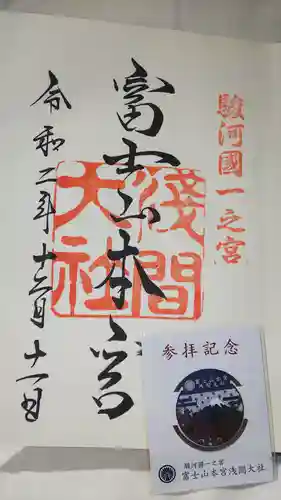 駿河國一之宮
富士山本宮
淺間
大社
令和二年十二月十一日
参拝記念
駿河國一之宮
富士山本宮浅間大社